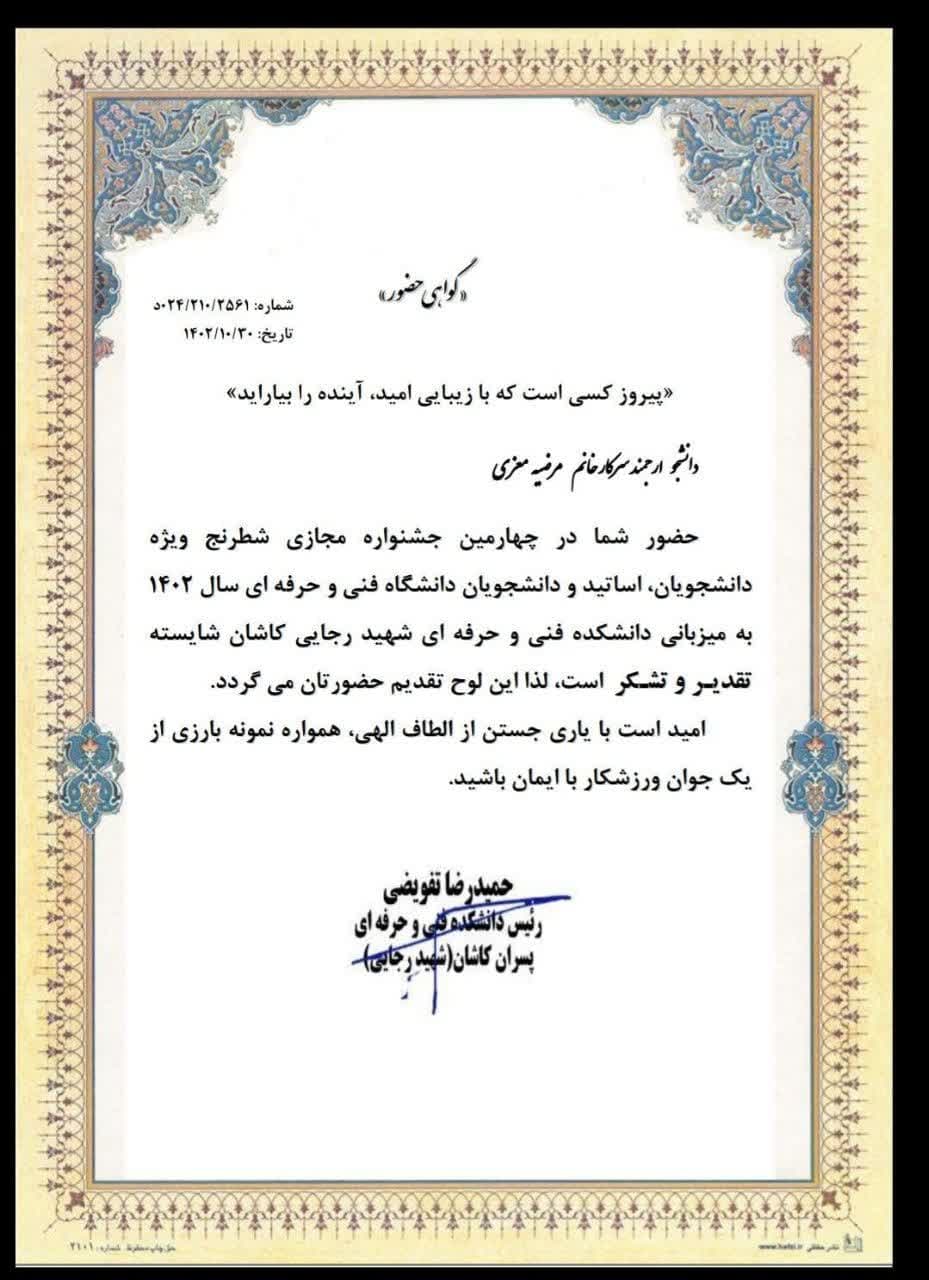 «گواهی حضور»
شماره: ۰۲۴/۲۱۰/۲۵۶۱د
تاریخ: ۱۴۰۲/۱۰/۳۰
«پیروز کسی است که با زیبایی امید، آینده را بیاراید»
دانشجو ارجمند سرکار خانم مرضیه معزی
حضور شما در چهارمین جشنواره مجازی شطرنج ویژه
دانشجویان، اساتید و دانشجویان دانشگاه فنی و حرفه ای سال ۱۴۰۲
به میزبانی دانشکده فنی و حرفه ای شهید رجایی کاشان شایسته
تقدیـر و تشـکر است، لذا این لوح تقدیم حضورتان می گردد.
امید است با یاری جستن از الطاف الهی، همواره نمونه بارزی از
یک جوان ورزشکار با ایمان باشید.
حمیدرضا تفویضی
رئیس دانشکده فنی و حرفه ای
پسران کاشان(شهید رجایی)
حق چاپ محفوظ. شماره: ۲۱۰۱